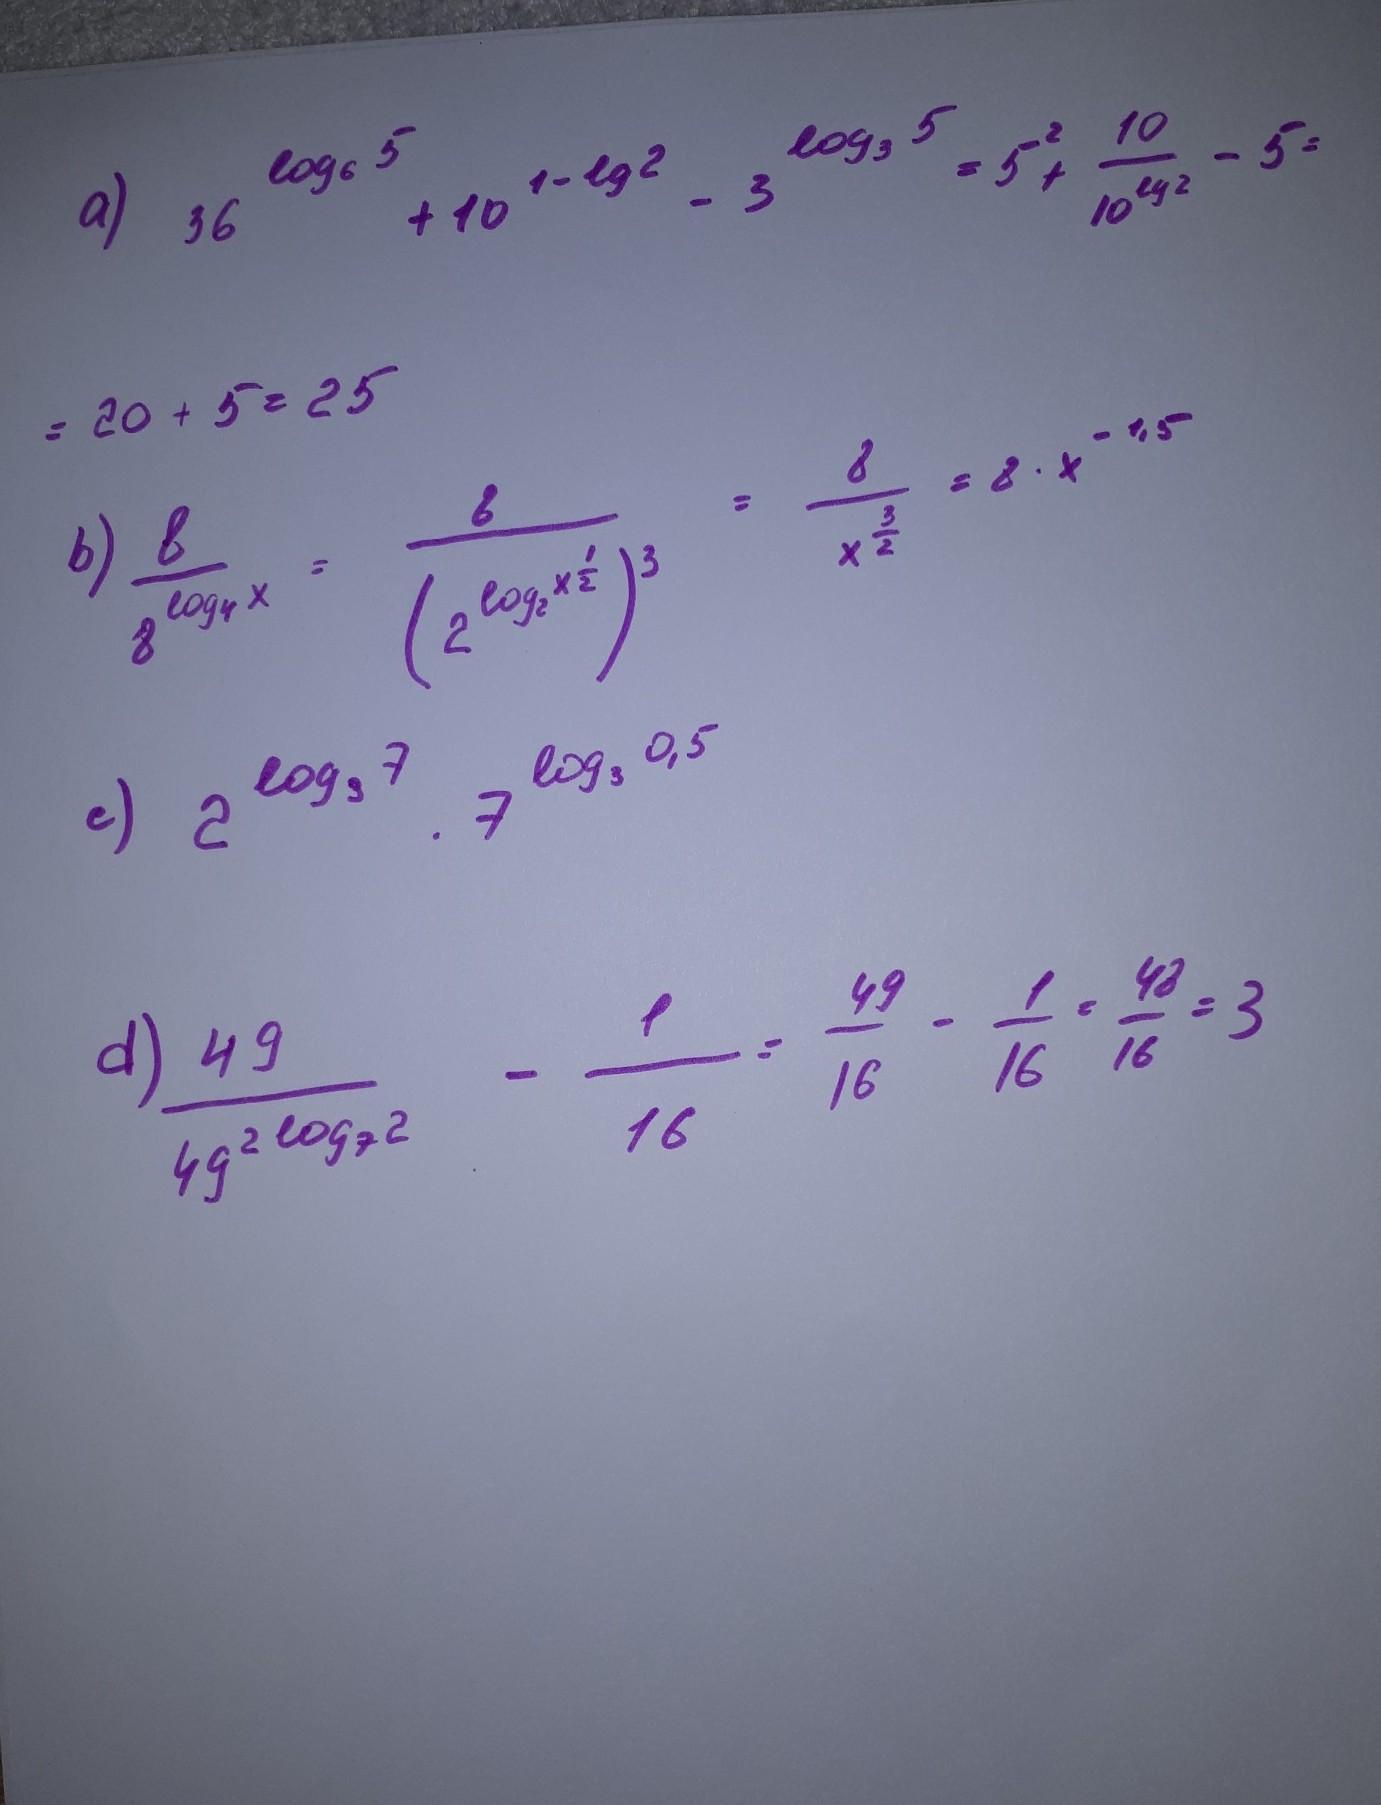 a) 36^{log₆ 5} + 10^{1-lg2} - 3^{log₃ 5} = 5² + \frac{10}{10^{lg2}} - 5 =
= 20 + 5 = 25
b) \frac{8}{8^{log₄ x}} = \frac{8}{(2^{log₂ x^{\frac{1}{2}}})^3} = \frac{8}{x^{\frac{3}{2}}} = 8 · x^{-1,5}
c) 2^{log₃ 7} · 7^{log₃ 0,5}
d) \frac{49}{49^{2 log₇ 2}} - \frac{1}{16} = \frac{49}{16} - \frac{1}{16} = \frac{48}{16} = 3